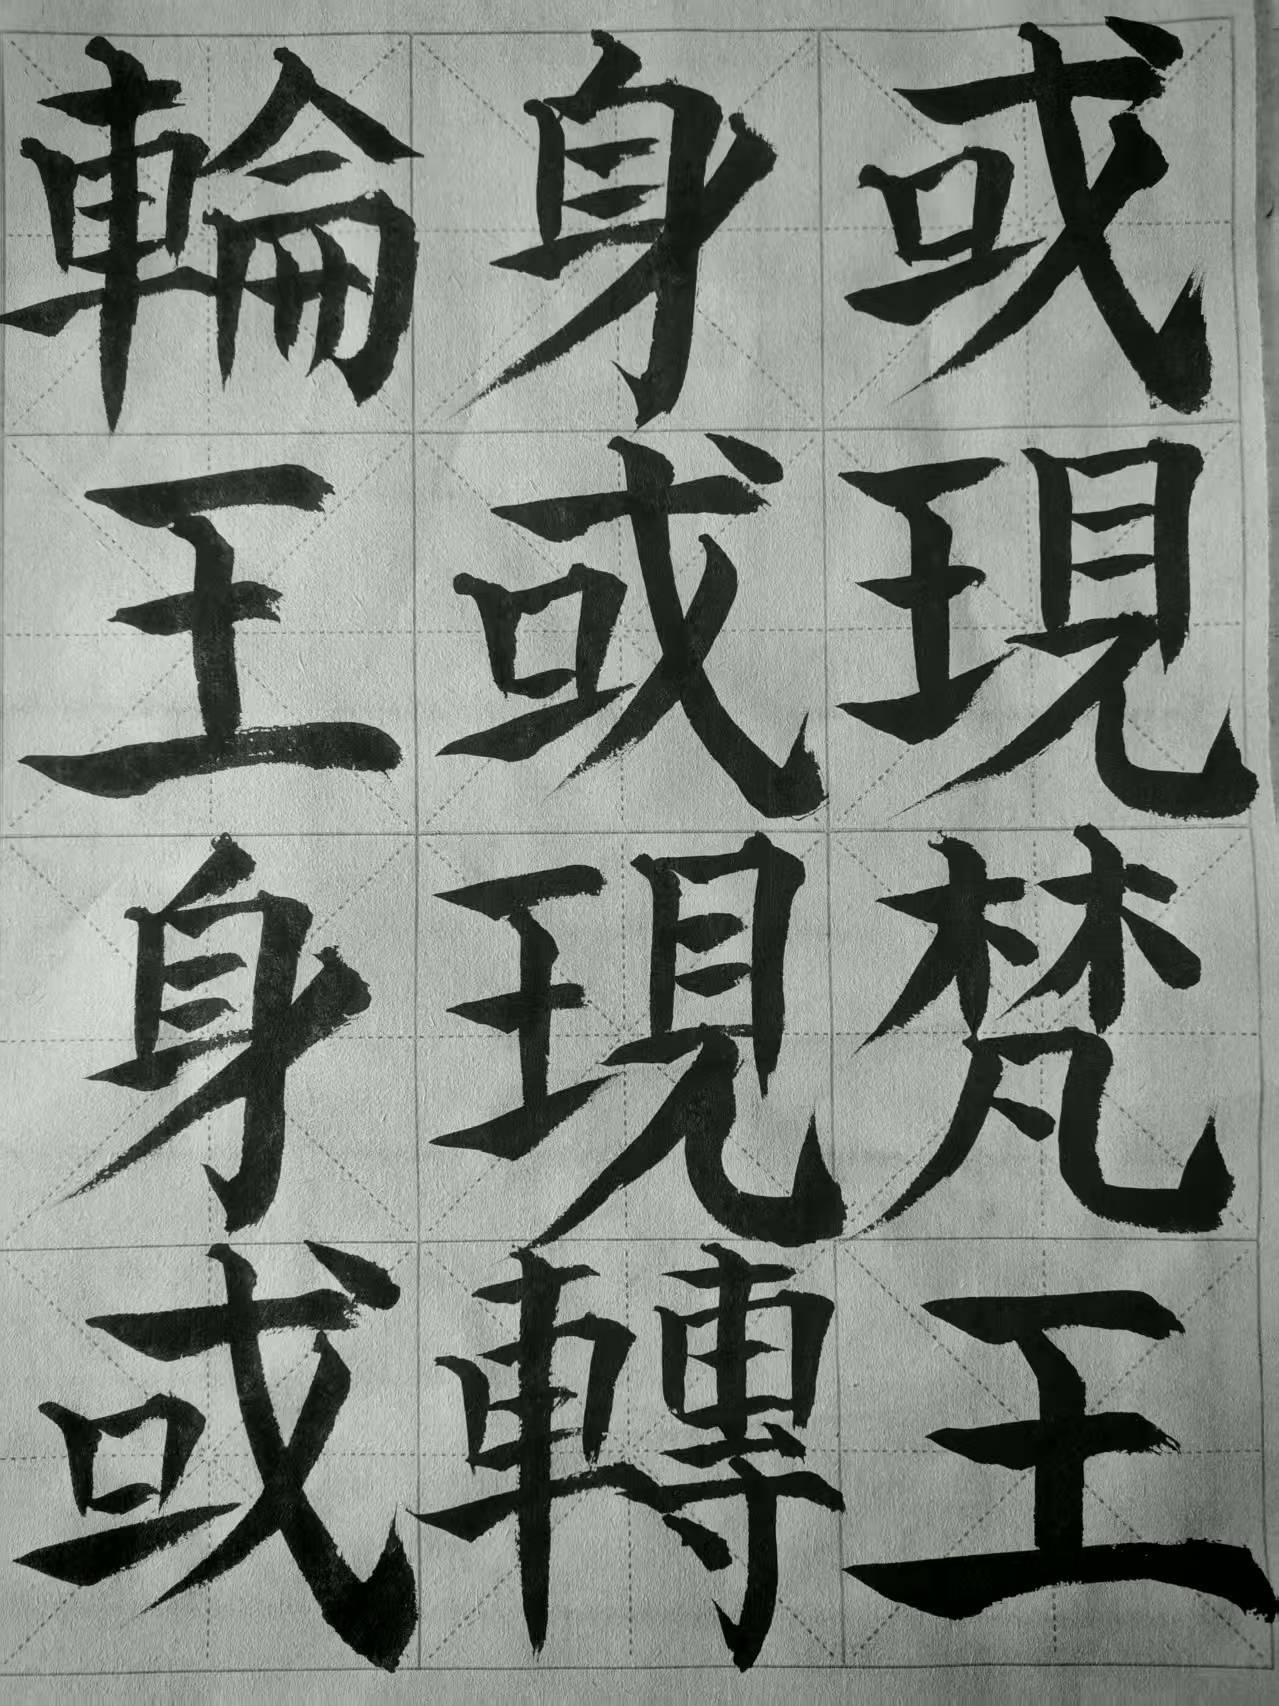 或現梵王
身或現轉
輪王身或